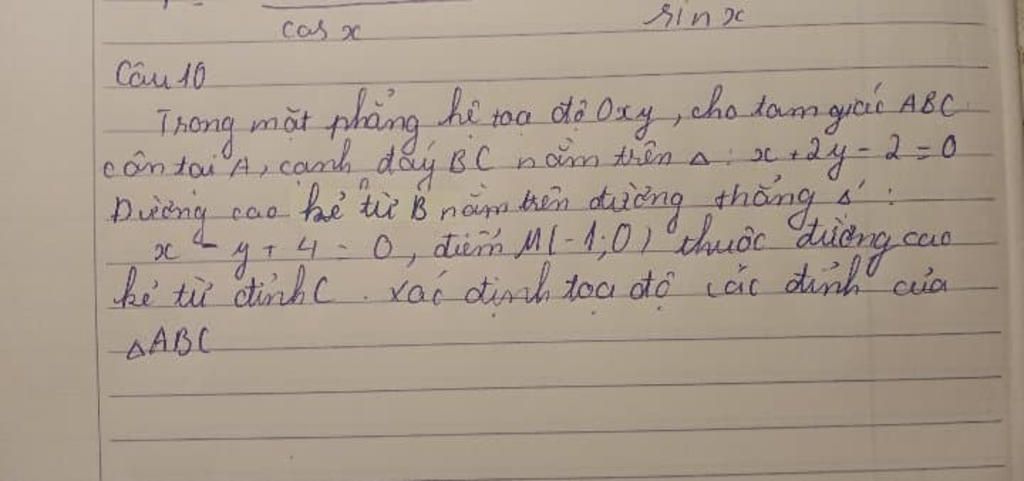 cos x sin x
Câu 10
Trong mặt phẳng hệ toạ độ Oxy, cho tam giác ABC
cân tại A, cạnh đáy BC nằm trên Δ : x + 2y - 2 = 0
Đường cao kẻ từ B nằm trên đường thẳng Δ' :
x - y + 4 = 0, điểm M(-1;0) thuộc đường cao
kẻ từ đỉnh C. Xác định tọa độ các đỉnh của
ΔABC